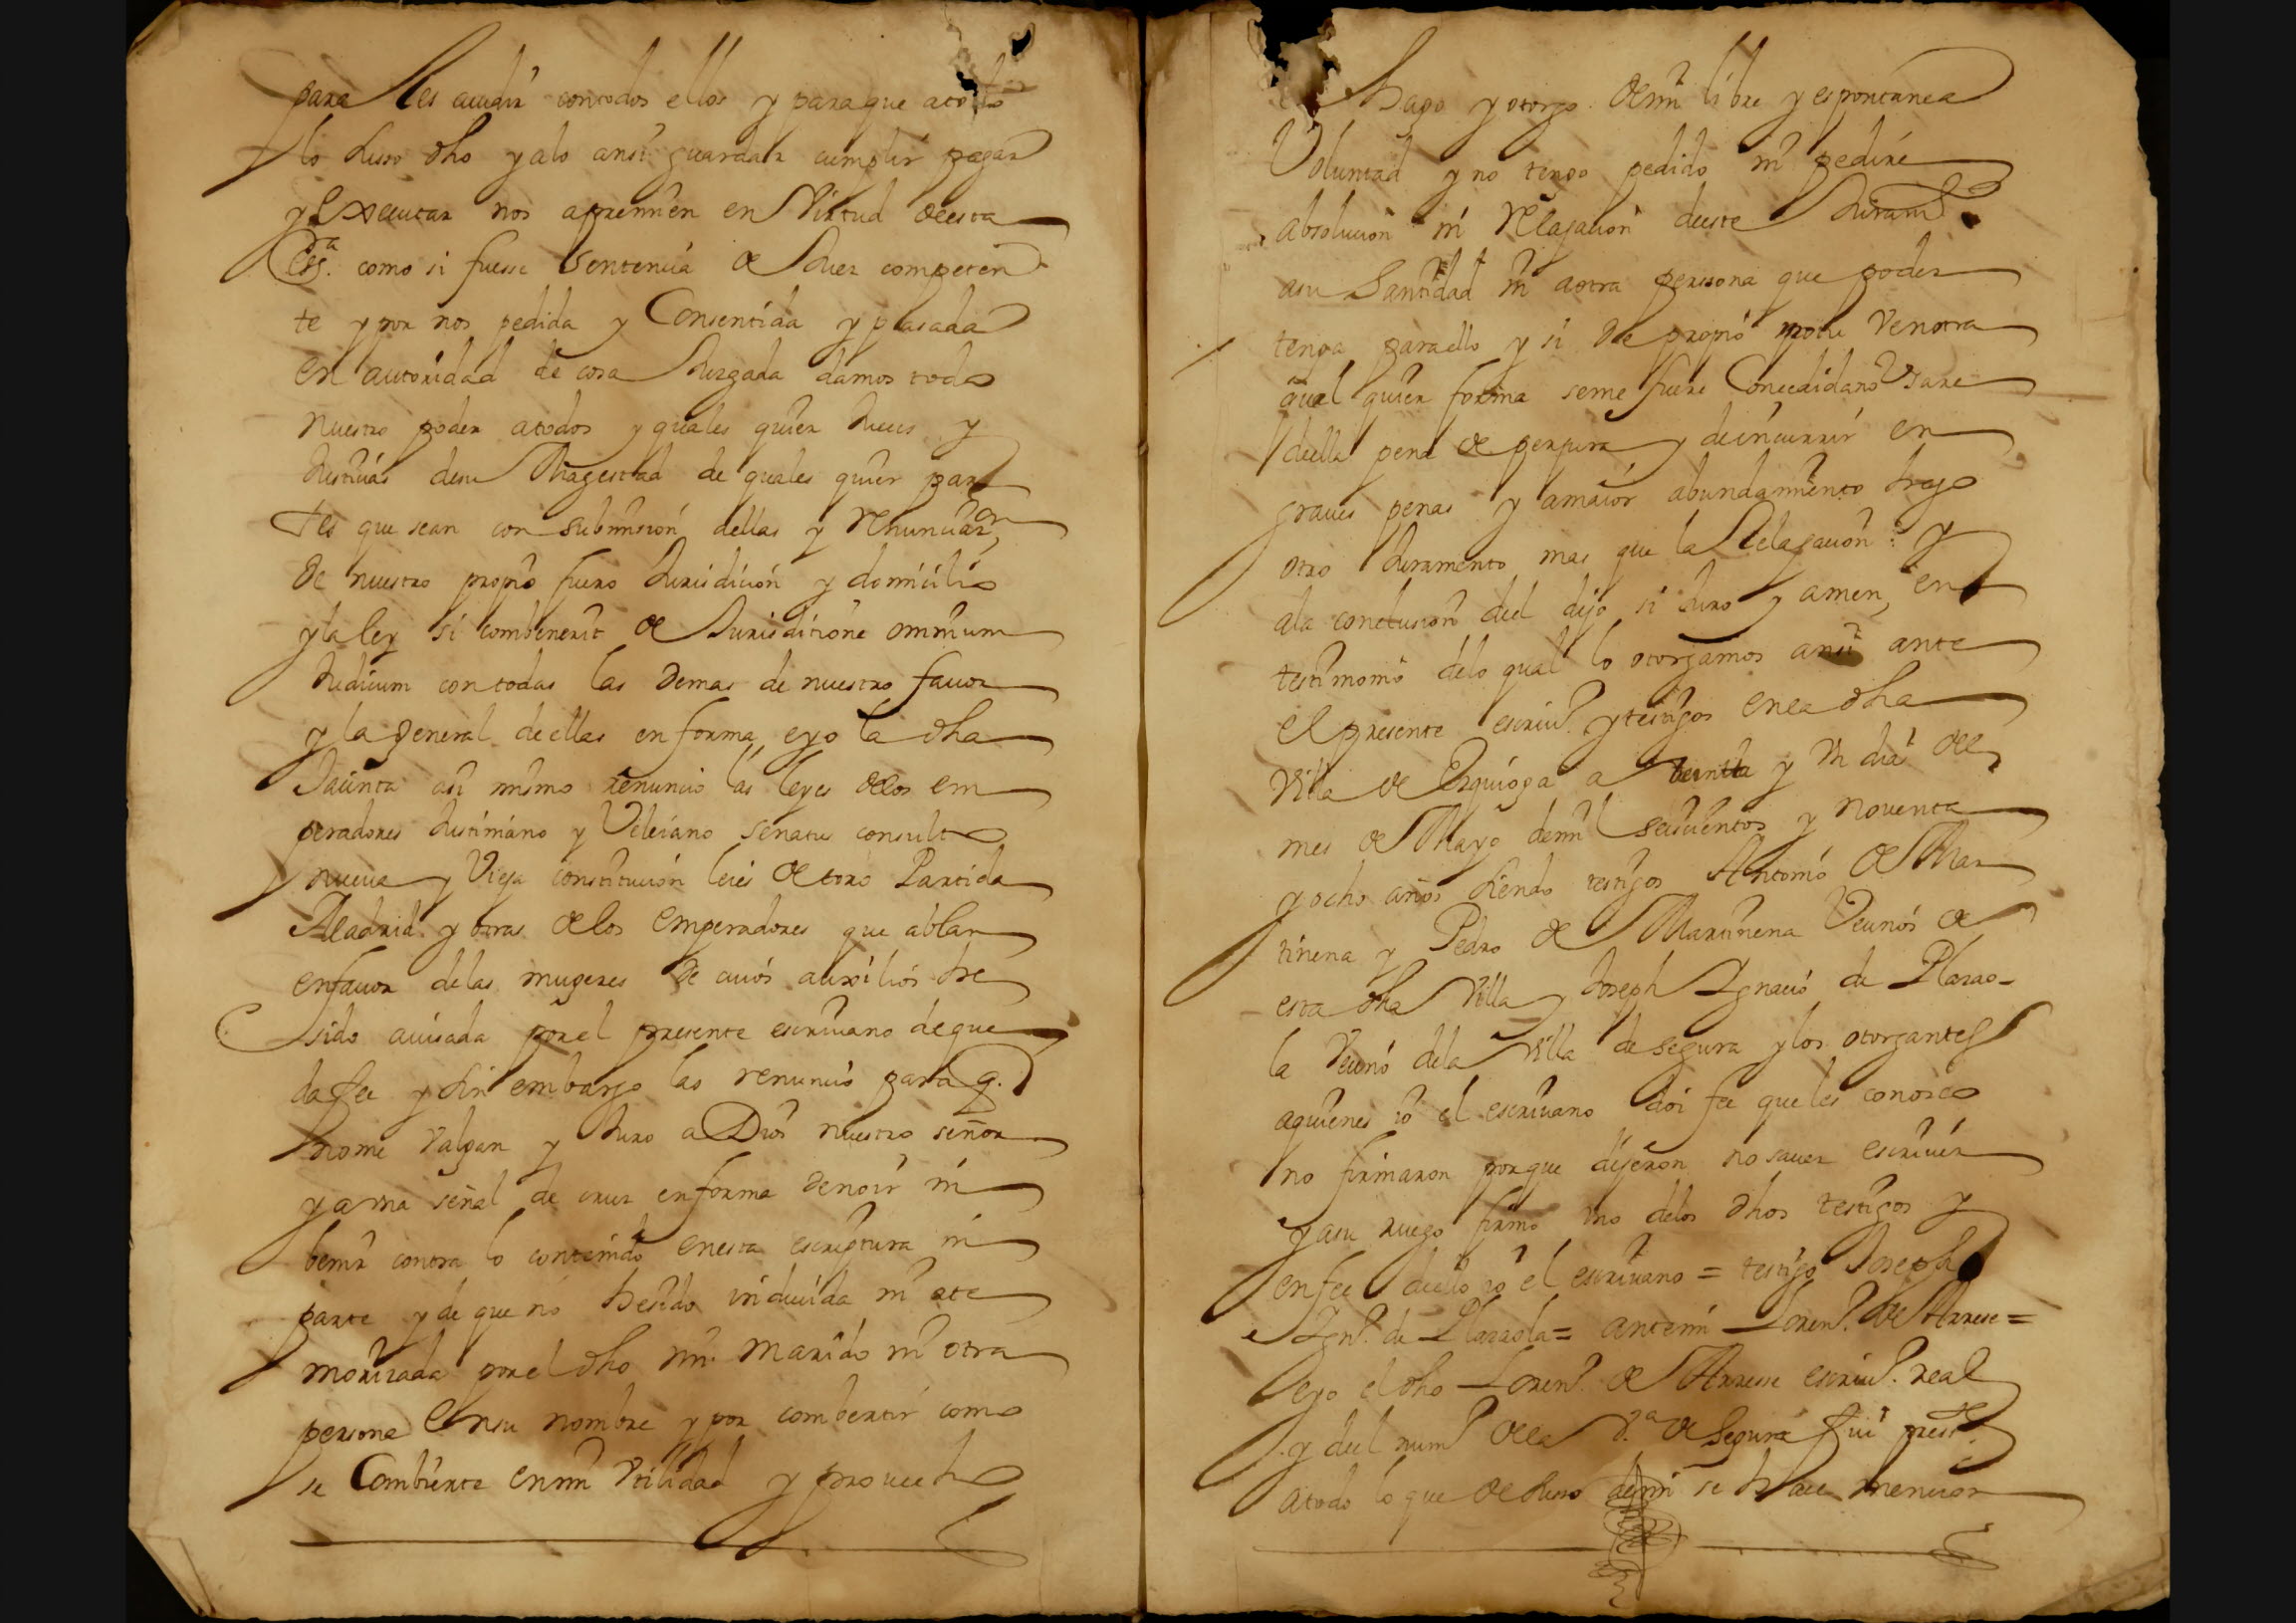 para les acudir contodos ellos y paraque atodo
lo susso dho yalo ansi guardar cumplir pagar
y executar nos apremien en Virtud deesta
Essra. como si fuesse Sentencia de Juez competen
te ypor nos pedida y Consentida ypasada
en autoridad de cosa Juzgada damos todo
nuestro poder atodos yquales quier Jueces y
Justicias desu Magestad de quales quier par
tes que sean con submision dellas y Renunciaon
de nuestro propio fuero Jurisdicion y domicilio
yla ley si combenerit de Jurisditione omnium
Judicum contodas las demas de nuestro fauor
y la General deellas en forma eyo la dha
Jacinta asi mismo renuncio las leyes delos em
peradores Justiniano y Veleiano senatus consulto
nueua y Vieja constitucion leies de toro Partida
Madrid y otras delos emperadores que ablan
enfauor delas mugeres de cuios auxilios he
sido auisada porel presente escriuano deque
da fee y sin embargo las renuncio para q.
nome Valgan y Juro a Dios nuestro señor
y a una señal de cruz enforma denoir ni
benir contra lo contenido enesta escriptura ni
parte y de que no hesido inducida ni ate
morizada porel dho mi marido ni otra
persona Ensu nombre ypor combertir como
se Combierte enmi Vtilidad y prouecho
hago yotorgo demi libre yespontanea
Voluntad yno tengo pedido ni pedire
absolucion ni Relajacion deeste Juramto
asu Santidad ni aotra perssona que poder
tenga paraello y si de propio motu Venotra
qual quier forma seme fuere Concedidano Vsare
deella pena de perjura y deincurrir en
graues penas y amaior abundamiento hago
otro Juramento mas que la Relajacion: y
ala conclusion del dijo si Juro y amen, en
testimonio delo qual lo otorgamos ansi ante
el presente escriuo. ytestigos enla dha
Villa de Ezquioga a treinta y Vn dias del
mes de Mayo demil seiscientos y nouenta
yocho años siendo testigos Antonio de Mar
tinena y Pedro de Martinena Vecinos de
esta dha Villa y Joseph Ignacio de Plazao-
la Vecino dela Villa de segura ylos otorgantes
aquienes io el escriuano doi fee queles conosco
no firmaron porque dijeron no sauer escriuir
yasu ruego firmo vno delos dhos testigos y
enfee deello io el escriuano = testigo Joseph
Igno. de Plazaola = antemi Loreno. de Arrese =
eyo eldho Loreno. de Arrese escriuo. real
y del numo dela Va. de Segura fui presste
atodo lo que de susso demi se hace mencion